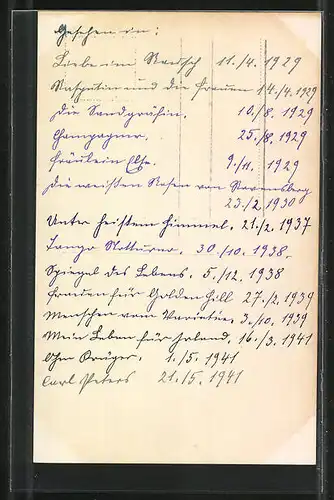 Gesehen in:
Liebe im Rausch 11./4. 1929
Rasputin und die Frauen 14./4. 1929
Die Sandgräfin. 10./8. 1929
Champagner. 25./8. 1929
Fräulein Else. 9./11. 1929
Die weißen Rosen von Ravensberg
23./2. 1930
Unter heißem Himmel. 21./2. 1937
Tango Notturno. 30./10. 1938.
Spiegel des Lebens. 5./12. 1938
Frauen für Golden Hill 27./2. 1939
Menschen vom Varieté. 3./10. 1939
Mein Leben für Irland. 16./3. 1941
Ohm Krüger. 1./5. 1941
Carl Peters 21./5. 1941